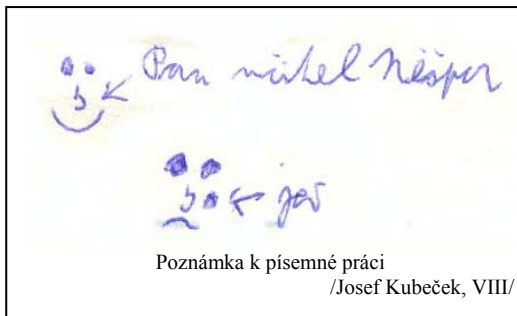 Pan učitel Něšpor
já
Poznámka k písemné práci
/Josef Kubeček, VIII/